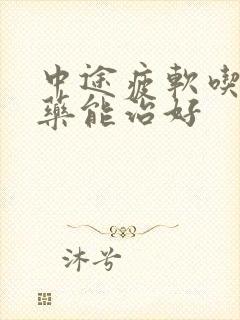 中途疲軟喫
藥能治好
沐兮